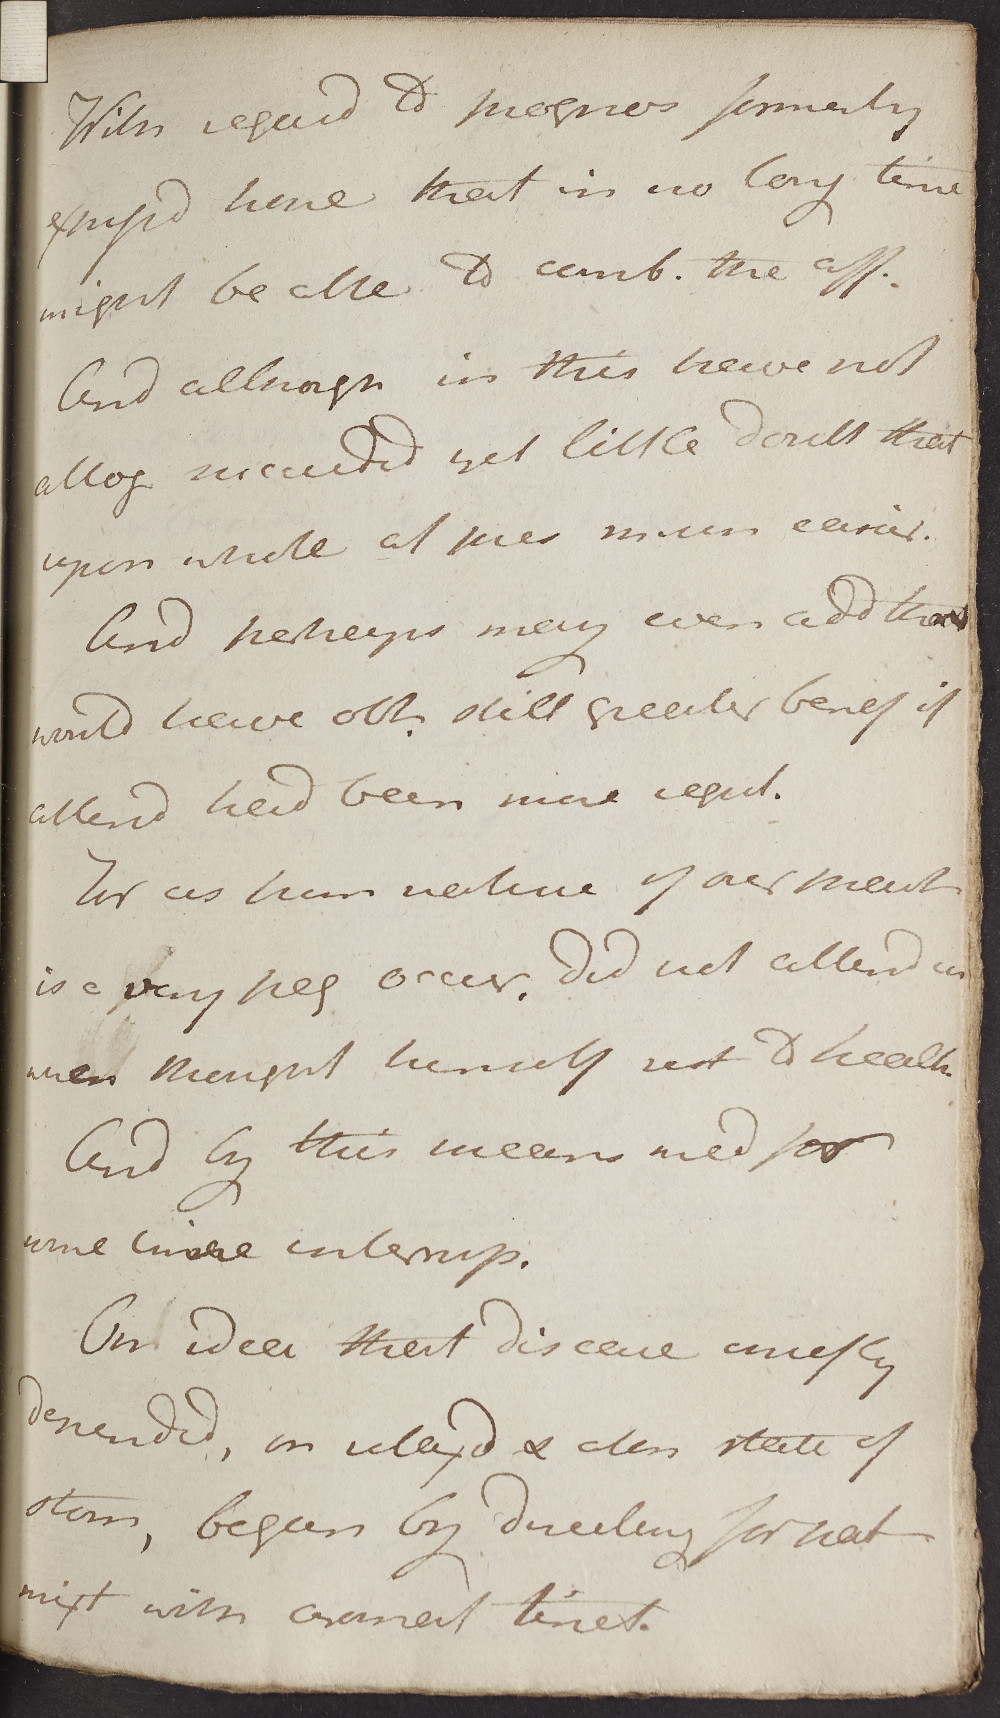 With regard to prognos formerly
exprss'd hope that in no long time
might be able to comb. the aff.
And although in this have not
altog succeeded yet little doubt that
upon whole at pres much easier.
And perhaps may even add that
would have obt. still greater benef if
attend had been more regul.
For as from nature of our
is a very freq occur. did not attend
when thought himself rest to health.
And by this means med for
some time interrup.
On idea that disease chiefly
depended, on relax'd & state of
stom, began by directing for pat
mixt with aromat tinct.